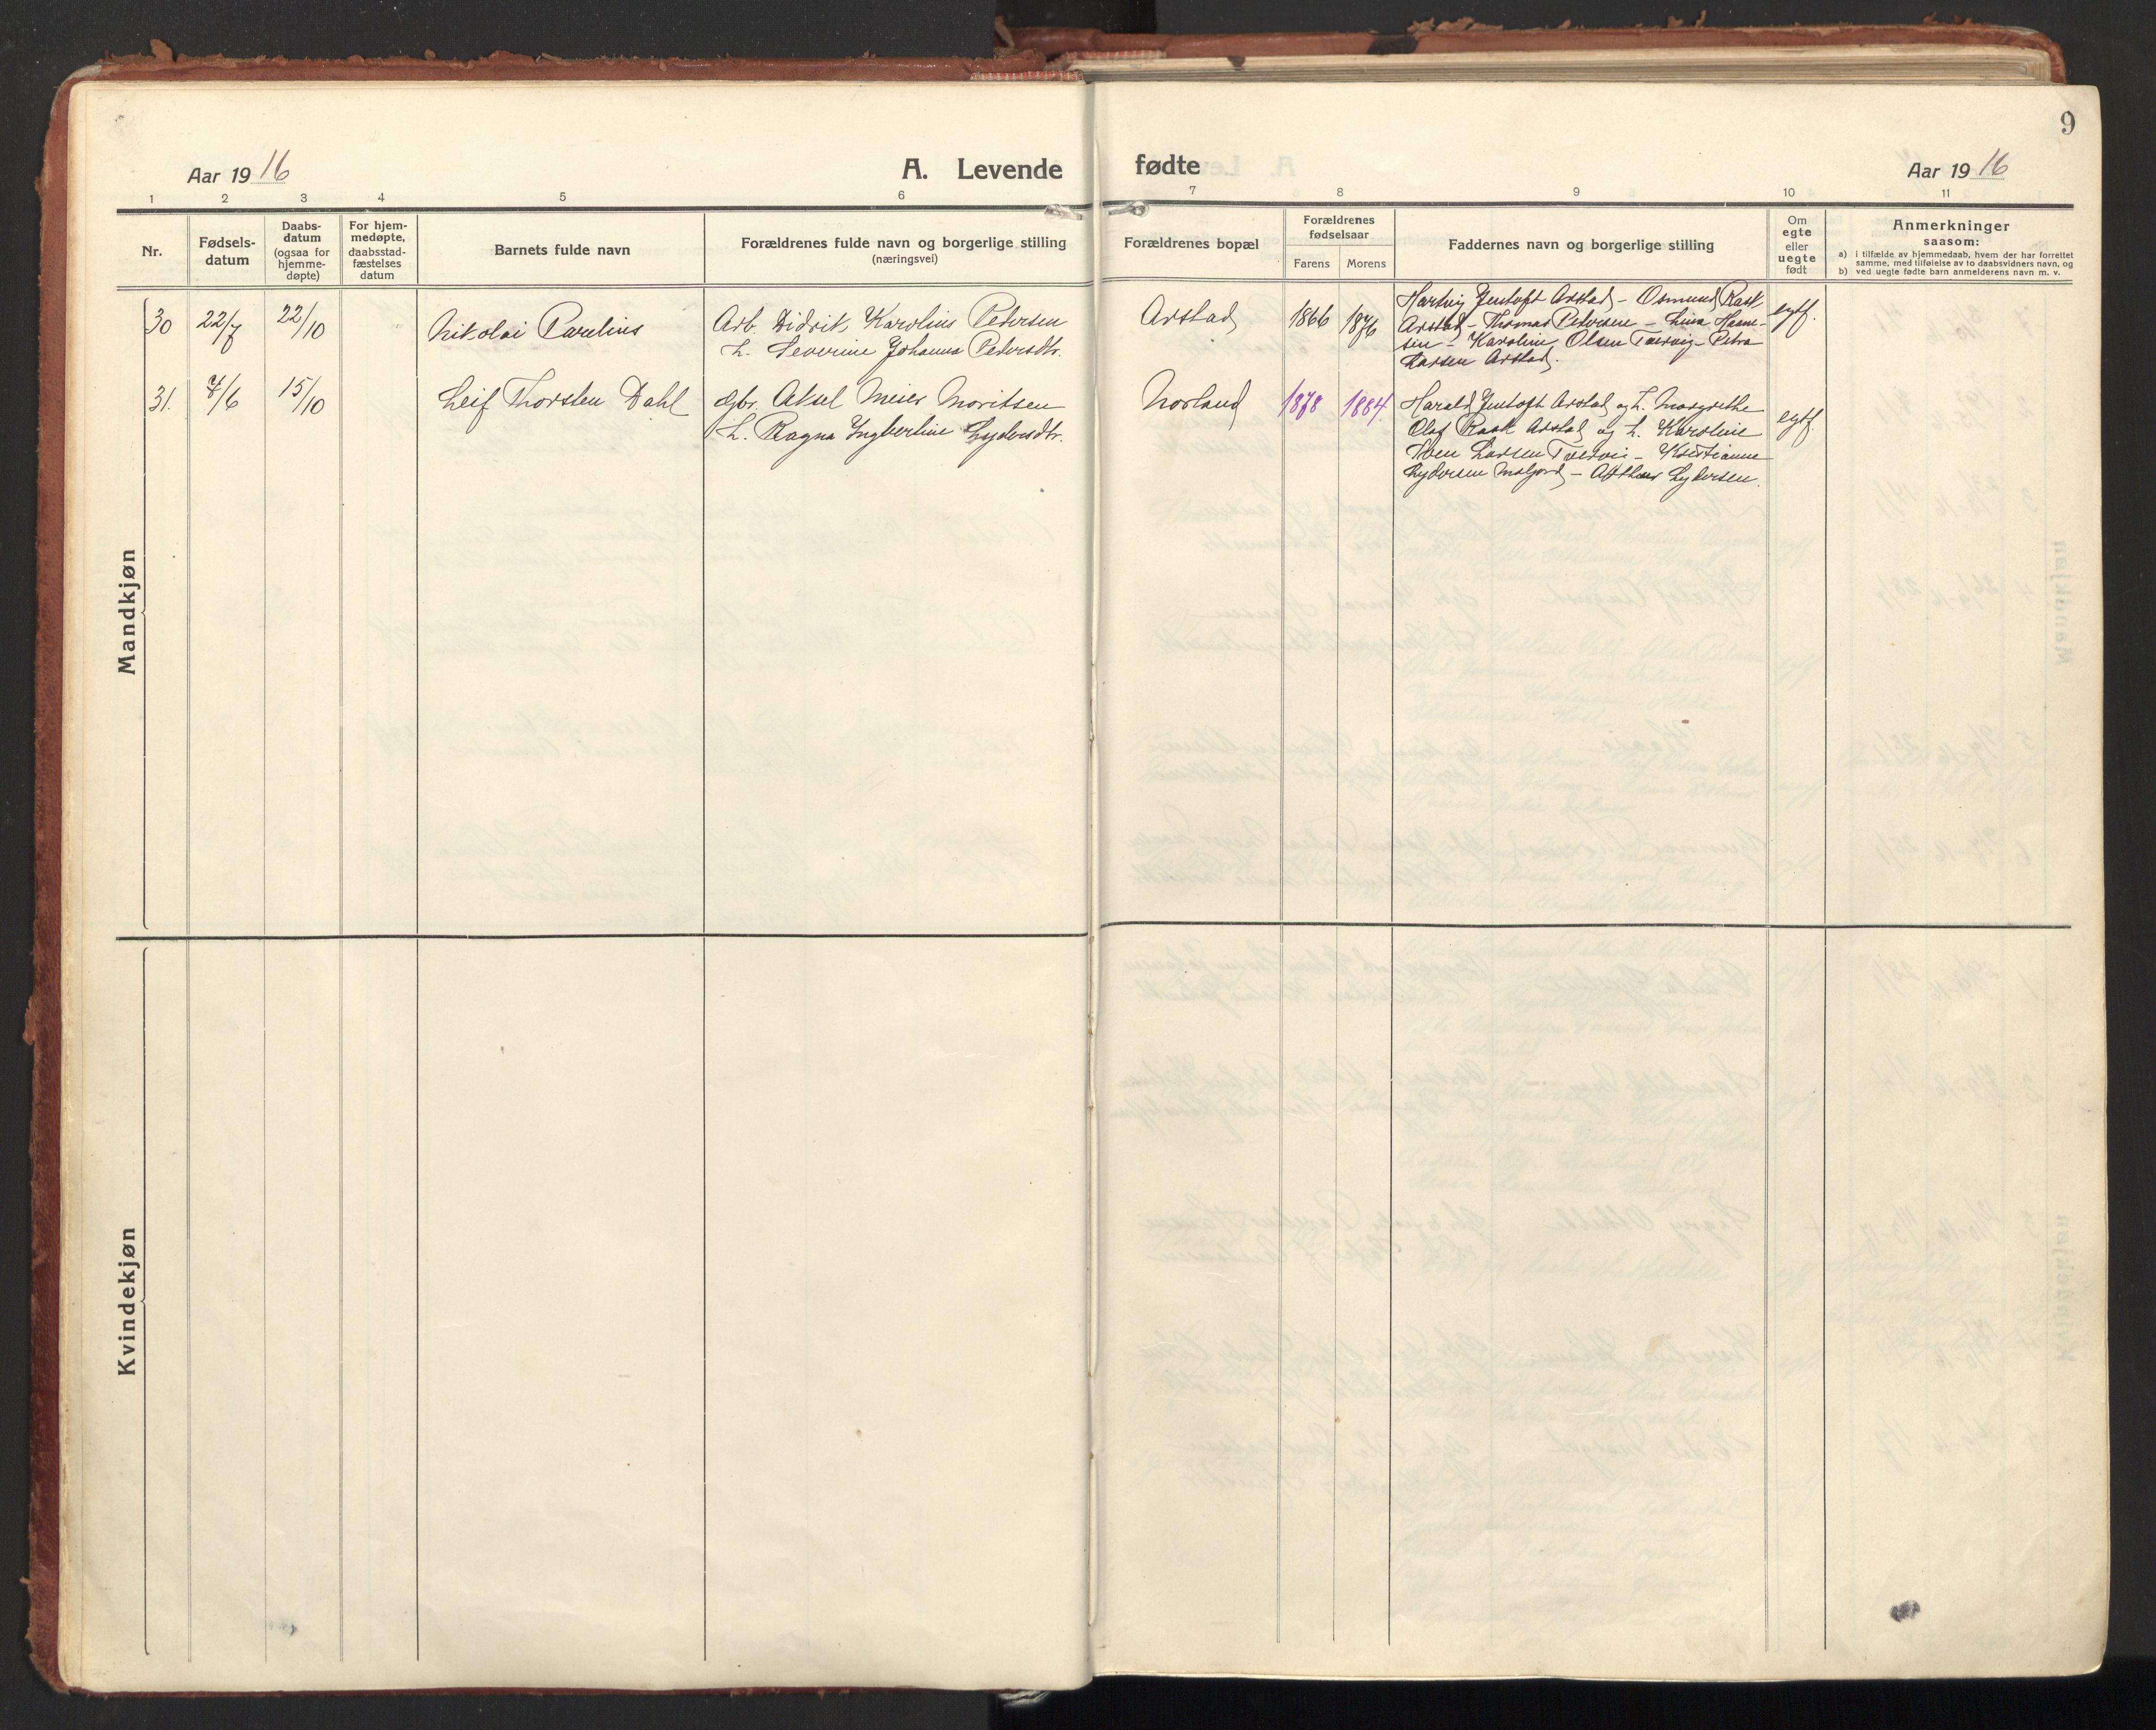 9
Aar 1916
A. Levende fødte
Aar 1916
1 2 3 4 5 6 7 8 9 10 11
Nr.
Fødsels-
datum
Daabs-
datum
(ogsaa for
hjemme-
døpte)
For hjem-
medøpte,
daabsstad-
fæstelses
datum
Barnets fulde navn
Forældrenes fulde navn og borgerlige stilling
(næringsvei)
Forældrenes bopæl
Forældrenes
fødselsaar
Farens Morens
Faddernes navn og borgerlige stilling
Om
egte
eller
uegte
født
Anmerkninger
saasom:
a) i tilfælde av hjemmedaab, hvem der har forrettet
samme, med tilføielse av to daabsvidners navn, og
b) ved uegte fødte barn anmelderens navn m. v.
Mandkjøn
30 22/7 22/10 Nikolai Parelius
Arb. Didrik Karolius Pedersen
h. Severine Johanna Pedersdtr.
Arstad 1866 1876
Hartvig Jentoft Arstad - Osmund Rask
Arstad - Thomas Pedersen - Lina Hann-
sen - Karoline Olsen Tvervig - Petra
Larsen Arstad.
egtf.
31. 7/6 15/10 Leif Thorsten Dahl
Gbr. Aksel Meier Moritsen
h. Ragna Ingbertine Lydersdtr.
Norland 1878 1884.
Harald Jentoft Arstad og h. Margrethe
Olaf Rask Arstad og h. Karoline
Sven Larsen Tvervig - Kristianne
Lydersen - Arthur Lydersen.
egtf.
Kvindekjøn